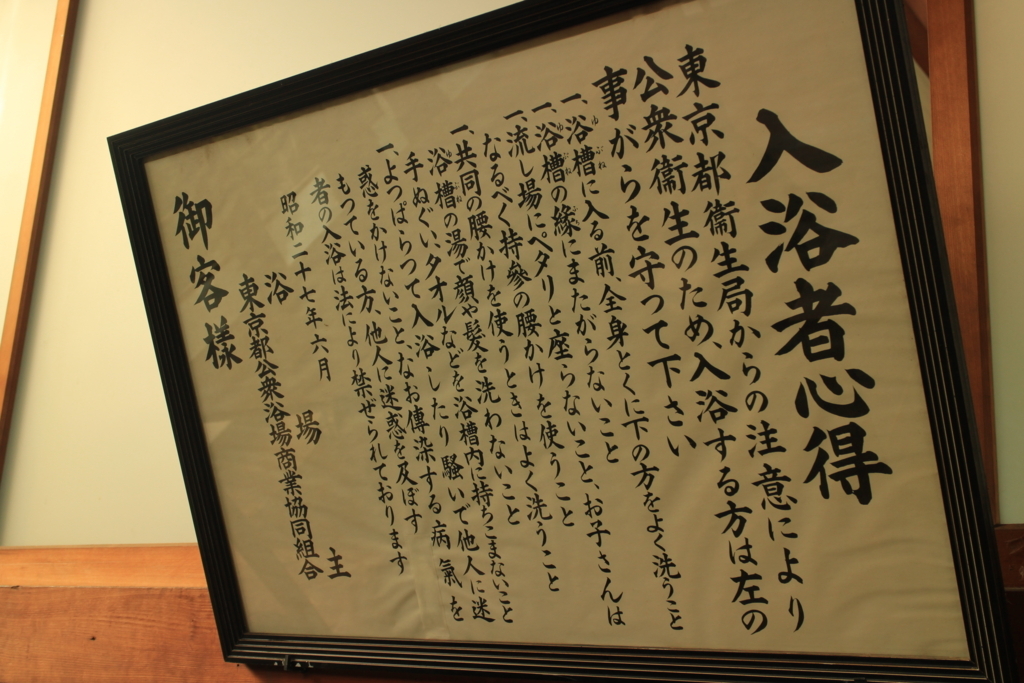 入浴者心得
東京都衞生局からの注意により
公衆衞生のため、入浴する方は左の
事がらを守つて下さい
一、浴槽に入る前、全身とくに下の方をよく洗うこと
一、浴槽の縁にまたがらないこと
一、流し場にペタリと座らないこと、お子さんは
なるべく持參の腰かけを使うこと
一、共同の腰かけを使うときはよく洗うこと
浴槽の湯で顔や髪を洗わないこと
手ぬぐい、タオルなどを浴槽内に持ちこまないこと
一、よつぱらつて入浴したり騒いで他人に迷
惑をかけないこと、なお傳染する病氣を
もつている方、他人に迷惑を及ぼす
者の入浴は法により禁ぜられております
昭和二十七年六月
浴場主
東京都公衆浴場商業協同組合
御客樣